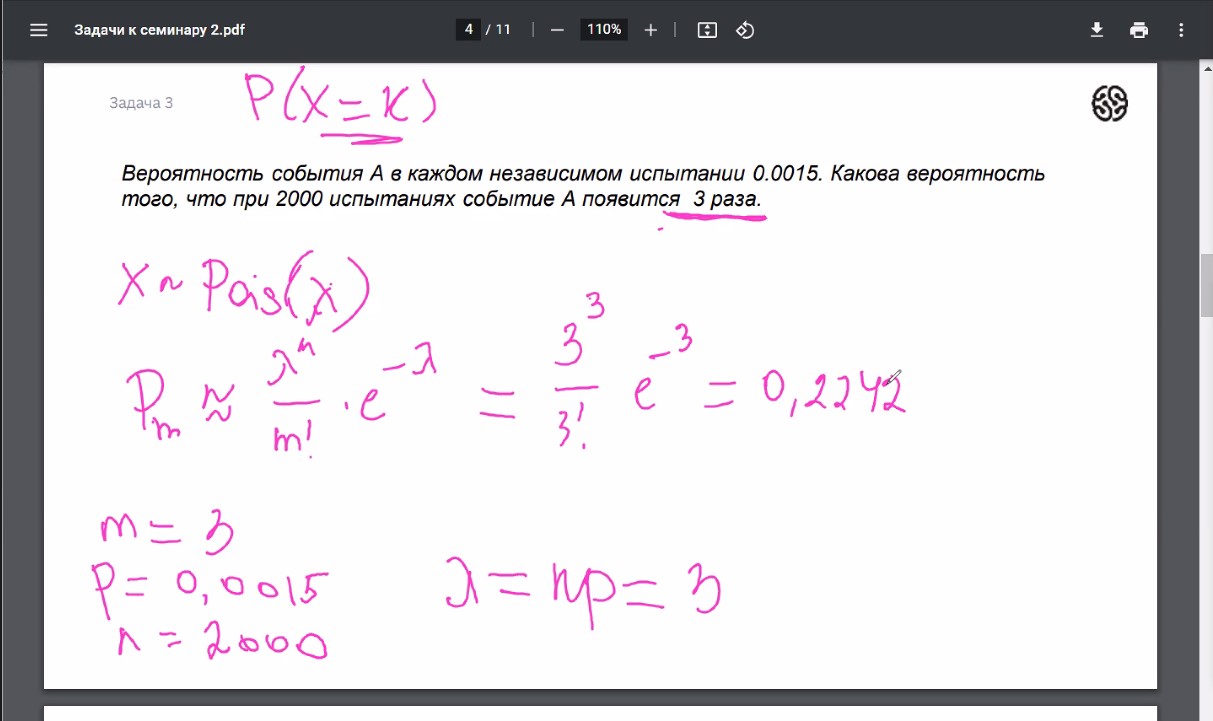 Задачи к семинару 2.pdf 4 / 11 110%
Задача 3 P(X=K)
Вероятность события А в каждом независимом испытании 0.0015. Какова вероятность
того, что при 2000 испытаниях событие А появится 3 раза.
X ~ Pois(λ)
Pm ≈ λ^m / m! · e^-λ = 3^3 / 3! e^-3 = 0,2242
m = 3
P = 0,0015 λ = np = 3
n = 2000